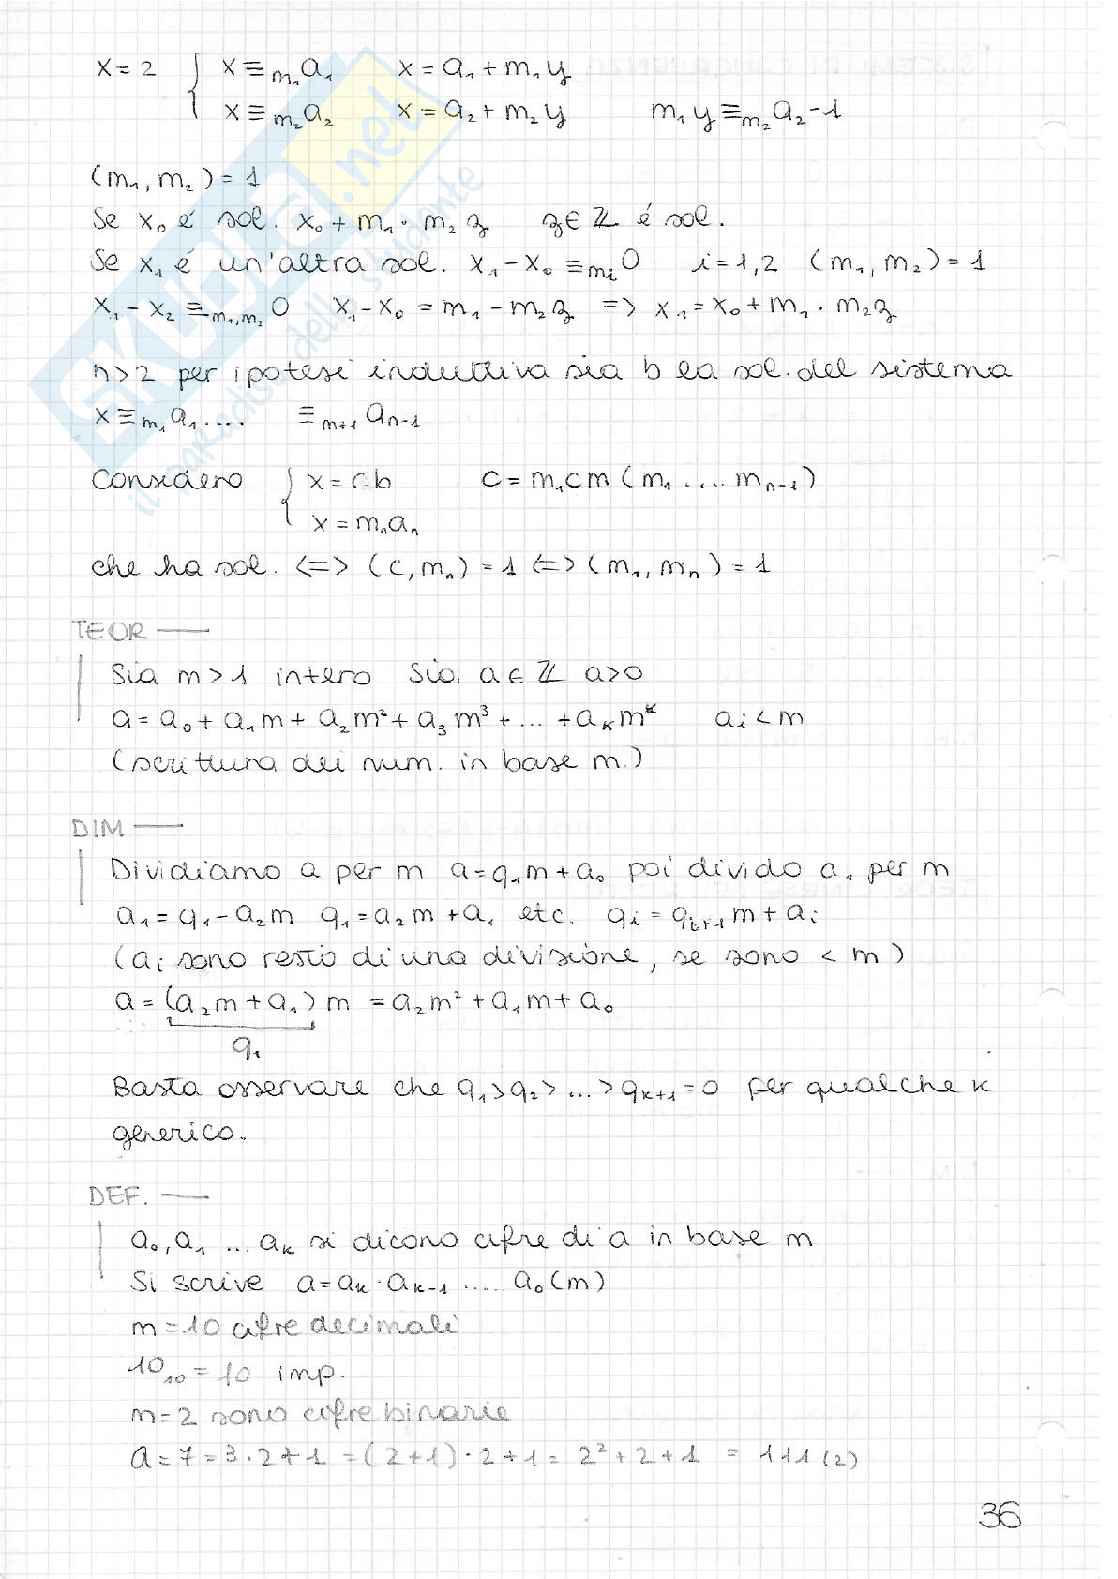 x = 2 { x ≡m₁ a₁ x = a₁ + m₁ y
x ≡m₂ a₂ x = a₂ + m₂ y m₁ y ≡m₂ a₂ - 1
(m₁, m₂) = 1
Se x₀ é sol. x₀ + m₁ · m₂ z z ∈ ℤ é sol.
Se x₁ é un'altra sol. x₁ - x₀ ≡mi 0 i = 1,2 (m₁, m₂) = 1
x₁ - x₂ ≡m₁,m₂ 0 x₁ - x₀ = m₁ - m₂ z => x₁ = x₀ + m₁ · m₂ z
n > 2 per ipotesi induttiva sia b la sol. del sistema
x ≡m₁ a₁ .... ≡m+1 an-1
Considero { x = c b c = m.cm (m₁ .... mn-1)
x = mn an
che ha sol. <=> (c, mn) = 1 <=> (m₁, mn) = 1
TEOR —
Sia m > 1 intero Sia a ∈ ℤ a > 0
a = a₀ + a₁ m + a₂ m² + a₃ m³ + ... + aₖ mᵏ ai < m
(scrittura dei num. in base m.)
DIM —
Dividiamo a per m a = q₁ m + a₀ poi divido a₁ per m
a₁ = q₁ - a₂ m q₁ = a₂ m + a₁ etc. qi = qi+1 m + ai
(ai sono resto di una divisione, se sono < m)
a = (a₂ m + a₁) m = a₂ m² + a₁ m + a₀
q₁
Basta osservare che q₁ > q₂ > ... > qk+1 = 0 per qualche k
generico.
DEF. —
a₀, a₁ ... aₖ si dicono cifre di a in base m
Si scrive a = aₖ · aₖ₋₁ .... a₀ (m)
m = 10 cifre decimali
10₁₀ = 10 imp.
m = 2 sono cifre binarie
a = 7 = 3 · 2 + 1 = (2 + 1) · 2 + 1 = 2² + 2 + 1 = 111 (2)
36
SKUOLA.net
il paradiso dello studente